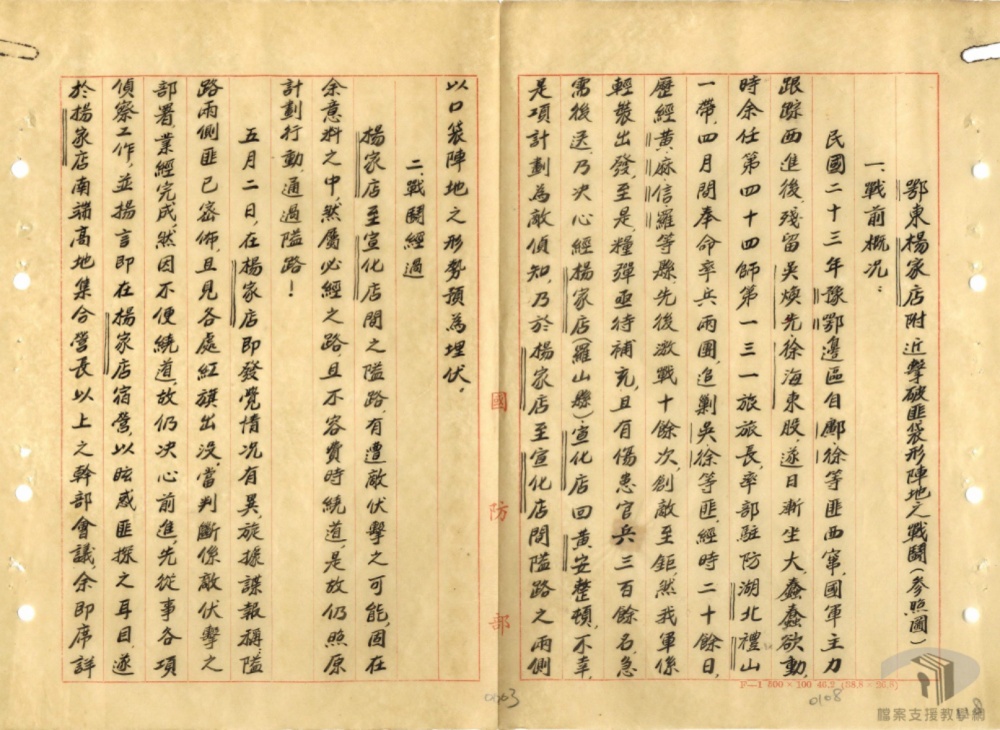 鄂東楊家店附近擊破匪袋形陣地之戰鬪(參照圖)
一、戰前概況：
民國二十三年豫鄂邊區自鄺、徐等匪西竄,國軍主力
跟踪西進後,殘留吳煥先徐海東股,遂日漸坐大,蠢蠢欲動,
時余任第四十四師第一三一旅旅長,率部駐防湖北禮山
一帶,四月間奉命率兵兩團,追剿吳、徐等匪,經時二十餘日,
歷經黃、麻、信、羅等縣,先後激戰十餘次,創敵至鉅,然我軍係
輕裝出發,至是,糧彈亟待補充,且有傷患官兵三百餘名,急
需後送,乃決心經楊家店(羅山縣)、宣化店回黃安整頓,不幸,
是項計劃為敵偵知,乃於楊家店至宣化店間隘路之兩側
以口袋陣地之形勢預為埋伏,
二、戰鬪經過
楊家店至宣化店間之隘路,有遭敵伏擊之可能,固在
余意料之中,然屬必經之路,且不容費時繞道,是故仍照原
計劃行動,通過隘路！
五月二日,在楊家店即發覺情況有異,旋據諜報稱,隘
路兩側匪已密佈,且見各處紅旗出沒,當判斷係敵伏擊之
部署,業經完成,然因不便繞道,故仍決心前進,先從事各項
偵察工作,並揚言即在楊家店宿營,以眩惑匪探之耳目,遂
於楊家店南端高地集合營長以上之幹部會議,余即席詳
國防部
F—1 500×100 46.2 (38.8×26.8)
0103
0108
檔案支援教學網